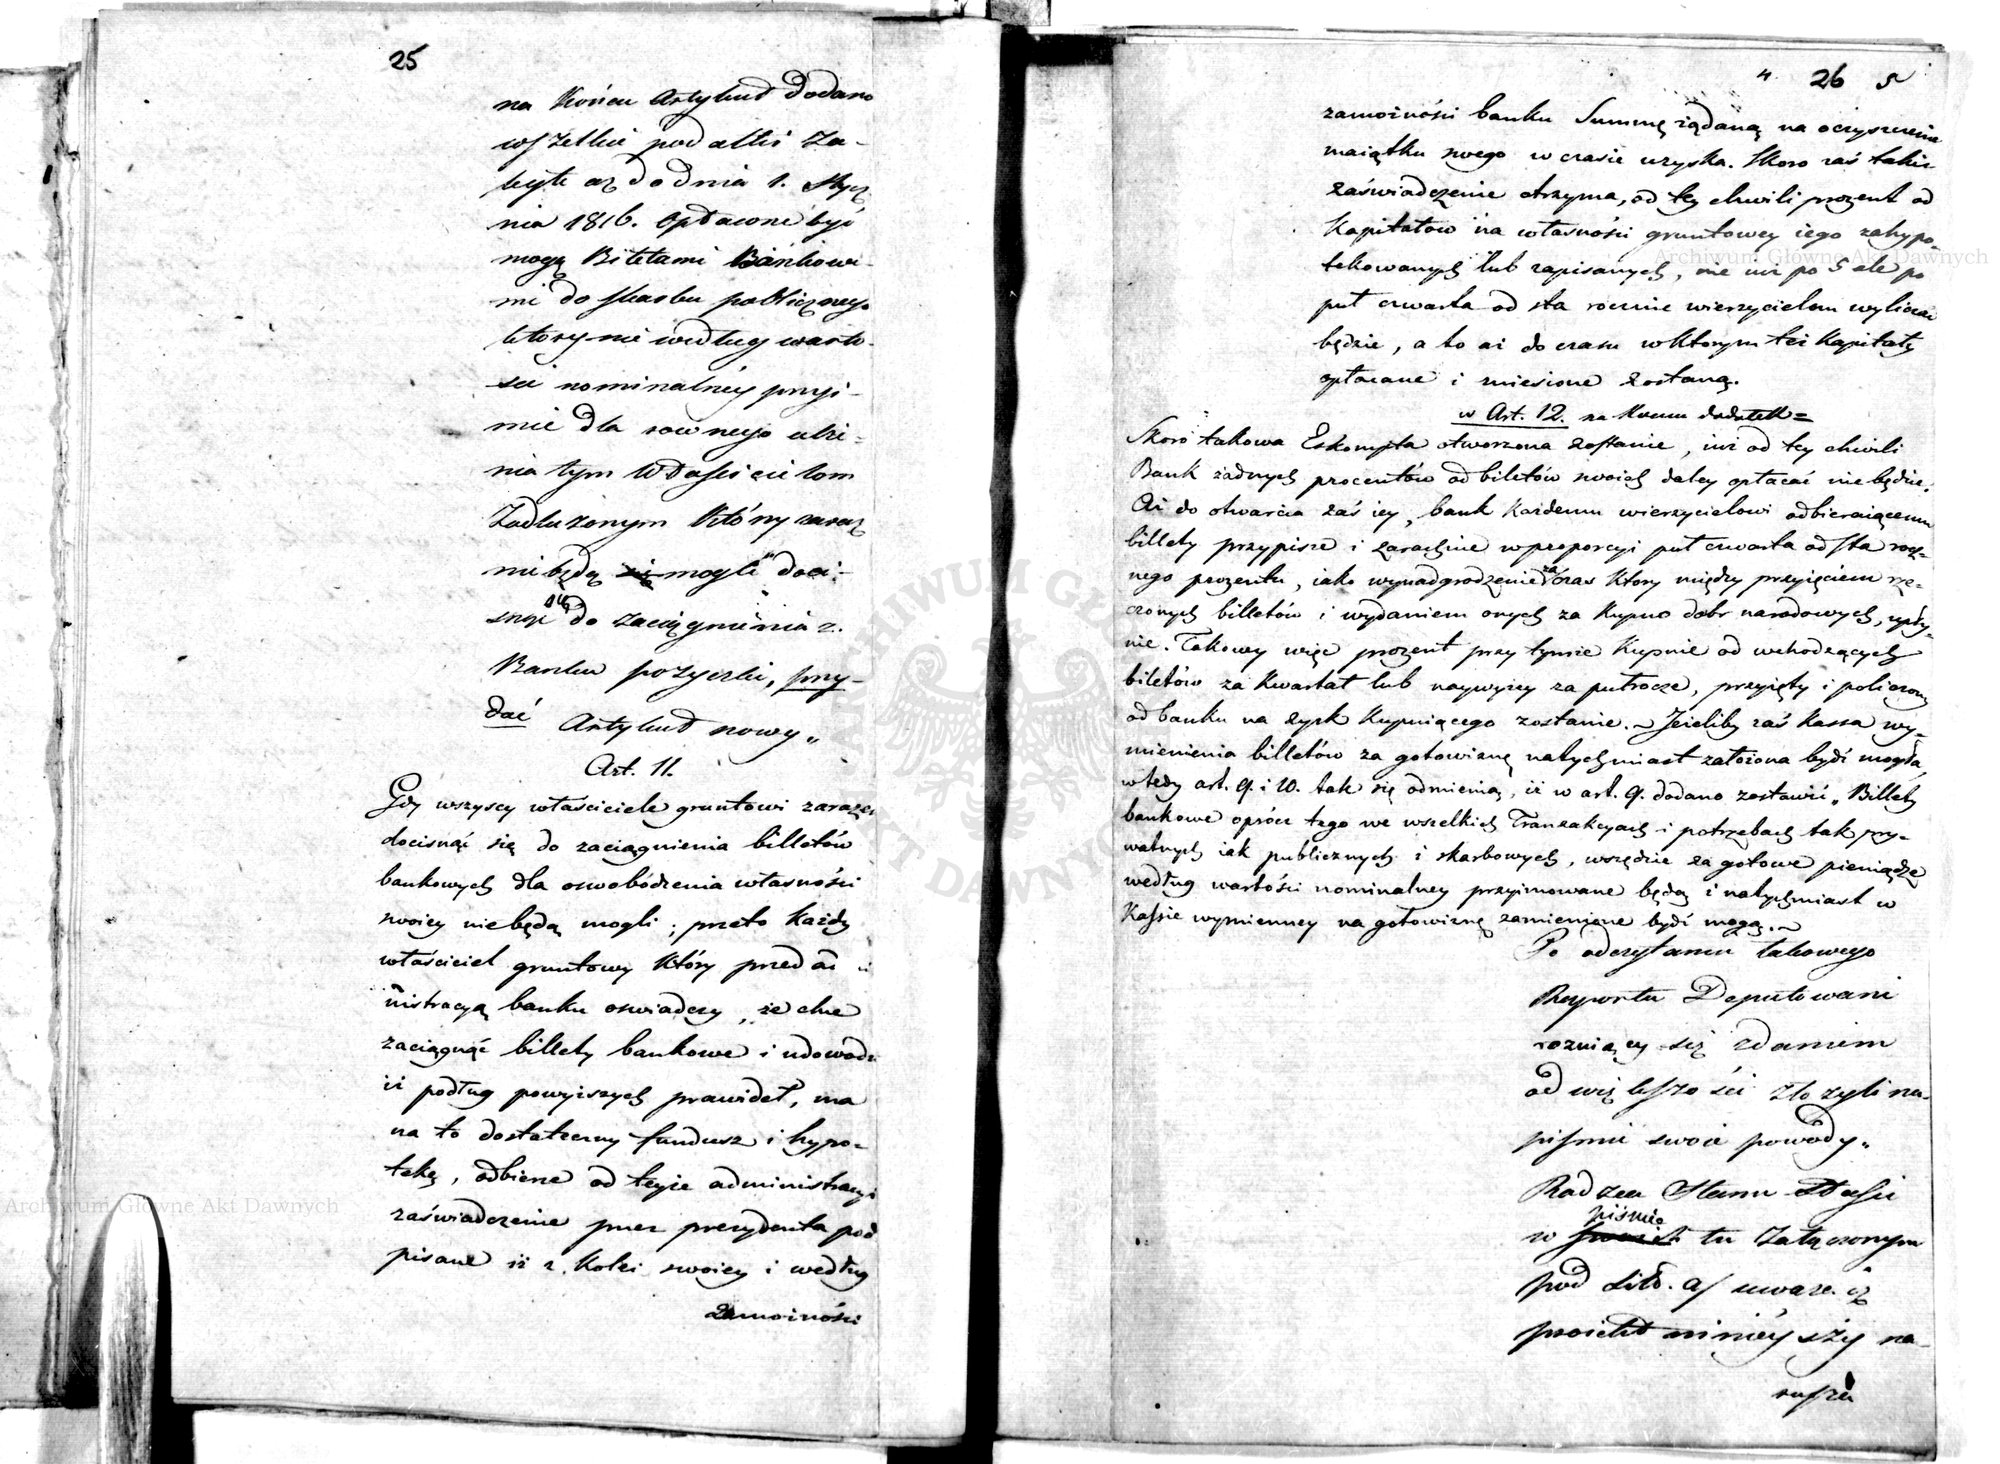 25
na Końcu Artykuł dodano
wszelkie podatki Za-
ległe aż do dnia 1. Stycz
nia 1816. opłacone być
mogą Biletami Bankowe-
mi do skarbu publicznego
ktory-mie według warto-
sci nominalnéy przyi-
mie dla rownego ulże-
nia tym Właścicielom
Zadłużonym Którzy zaraz
nie będą mogli doci-
snąć się do zaciągnienia z.
Banku pożyczki, przy-
dać Artykuł nowy„
Art. 11.
Gdy wszyscy właściciele gruntowi zaraz
docisnąć się do zaciągnienia billetów
bankowych dla oswobodzenia własności
swoiey nie będą mogli; przeto każdy
właściciel gruntowy Który przed ad
nistracyą banku oswiadczy, że chce
zaciągnąć billety bankowe i udowodn
iż podług powyższych prawideł, ma
na to dostateczny fundusz i hypo-
tekę, odbierze od teyże administracyi
zaświadczenie przez prezydenta pod
pisane iż z Kolei swoiey i według
zamożności
4 26 5
zamożności banku Summę żądaną na oczyszczenie
maiątku swego w czasie uzyska. Skoro zaś takie
zaświadczenie otrzyma, od tey chwili procent od
Kapitałow na własności gruntowey iego zahypo-
tekowanych lub zapisanych, nie iuż po 5 ale po
puł czwarta od sta rocznie wierzycielom wyliczać
będzie, a to aż do czasu w Którym też Kapitały
opłacane i zniesione zostaną.
w Art. 12. na Koncu dodatek=
Skoro takowa Eskompta otworzona zostanie, iuż od tey chwili
Bank żadnych procentów od biletów swoich daley opłacać nie będzie.
Aż do otwarcia zaś iey, bank Każdemu wierzycielowi odbieraiącemu
billety przypisze i zarachuie w proporcyi puł czwarta od sta rocz-
nego prozentu, iako wynadgrodzenie za czas Który między przyięciem rze-
czonych billetów i wydaniem onych za Kupno dobr narodowych, upły-
nie. Takowy więc prozent przy tymże Kupnie od wchodzących
biletów za Kwartał lub naywyżey za pułrocze, przyięty i policzony
od banku na zysk Kupuiącego zostanie. ~ Jeżeliby zaś Kassa wy-
mienienia billetów za gotowiznę natychmiast założona bydź mogła,
wtedy art. 9. i 10. tak się odmienią, iż w art. 9. dodano zostawić „ Billety
bankowe oprócz tego we wszelkich Tranzakcyach i potrzebach tak pry-
watnych iak publicznych i skarbowych, wszędzie za gotowe pieniądze
według wartości nominalney przyimowane będą i natychmiast w
Kassie wymienney na gotowiznę zamienione bydź mogą. ~
Po odczytaniu takowego
Raportu Deputowani
rozniący się zdaniem
od większości złożyli na
piśmie swoie powody„
Radzca Stanu Stasic
w piśmie tu Załączonym
pod Lit. a/ uważa iż
proiekt ninieyszy na
rusza